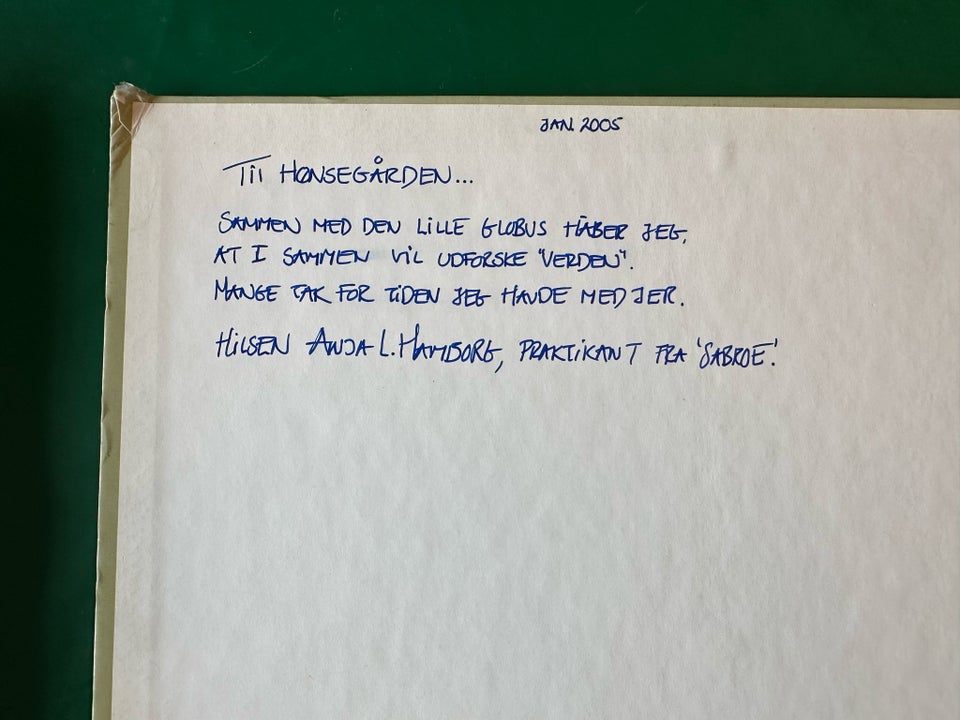 JAN. 2005
Til HØNSEGÅRDEN...
SAMMEN MED DEN LILLE GLOBUS HÅBER JEG,
AT I SAMMEN VIL UDFORSKE "VERDEN".
MANGE TAK FOR TIDEN JEG HAVDE MED JER.
HILSEN ANJA L. HAMBORG, PRAKTIKANT FRA 'SABROE'.